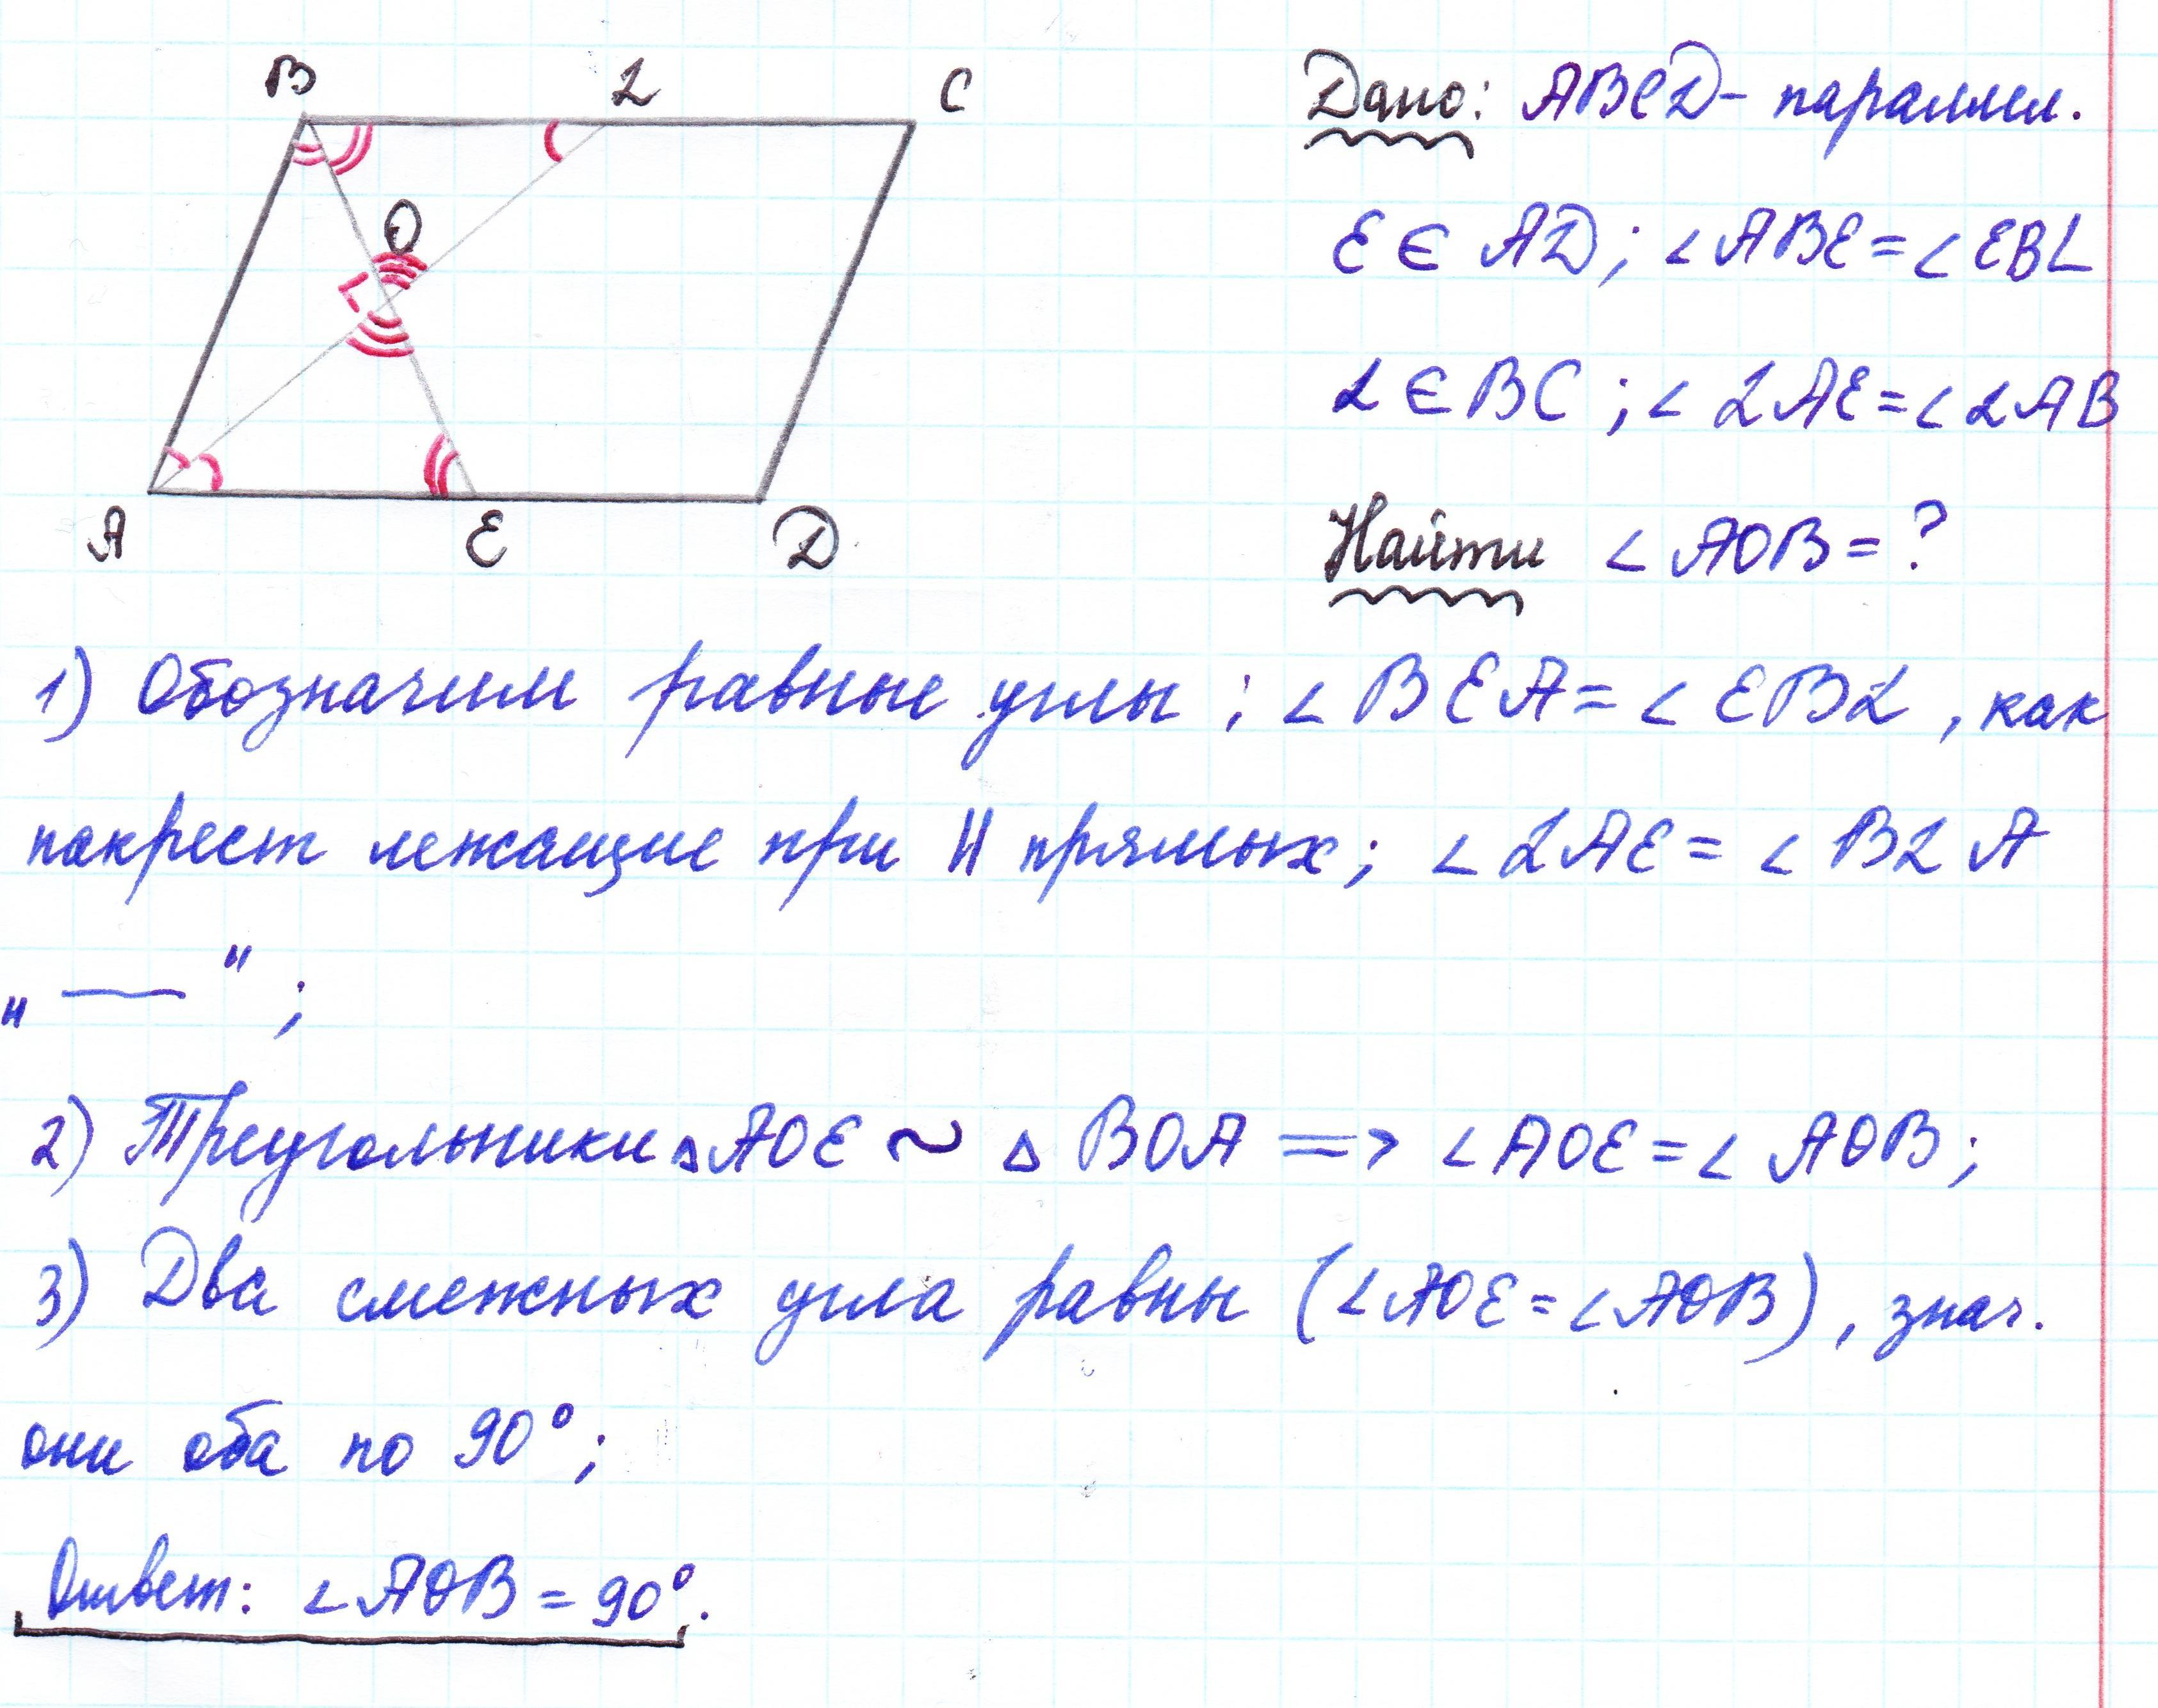 B L C
O
A E D
Дано: ABCD- параллел.
E ∈ AD; ∠ABE = ∠EBL
L ∈ BC; ∠LAE = ∠LAB
Найти ∠AOB = ?
1) Обозначим равные углы; ∠BEA = ∠EBL, как
накрест лежащие при || прямых; ∠LAE = ∠BLA
„ — ";
2) Треугольники △AOE ~ △BOA => ∠AOE = ∠AOB;
3) Два смежных угла равны (∠AOE = ∠AOB), знач.
они оба по 90°;
Ответ: ∠AOB = 90°.